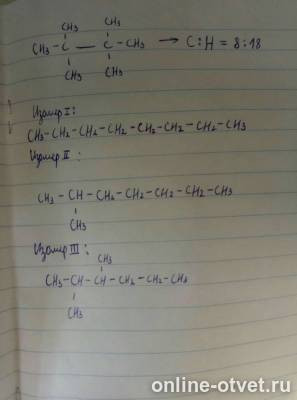 CH₃ CH₃
CH₃ - C — C - CH₃ → C : H = 8 : 18
CH₃ CH₃
Изомер I :
CH₃ - CH₂ - CH₂ - CH₂ - CH₂ - CH₂ - CH₂ - CH₃
Изомер II :
CH₃ - CH - CH₂ - CH₂ - CH₂ - CH₂ - CH₃
CH₃
Изомер III :
CH₃
CH₃ - CH - CH - CH₂ - CH₂ - CH₃
CH₃
online-otvet.ru